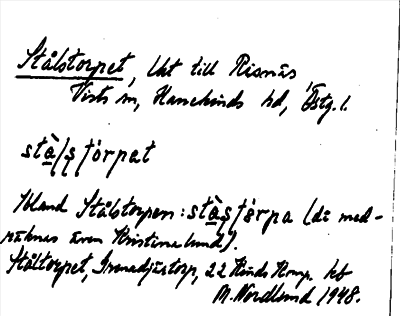 Stålstorpet, Uht till Risnäs
Vists sn, Hanekinds hd, Östg. l.
stå̀l/ṣṭórpet
Ibland Stålstorpen: stå̀ṣṭórpa (då med-
räknas även Kristinelund).
Ståltorpet, Grenadjärtorp, 22 Kinds Komp. kb
M. Nordlund 1948.